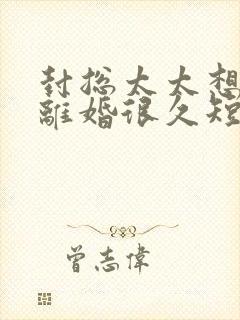 封总太太想
離婚很久短
曾志偉